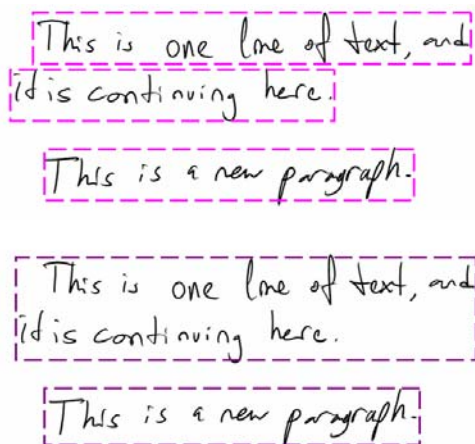 This is one line of text, and
it is continuing here.
This is a new paragraph.
This is one line of text, and
it is continuing here.
This is a new paragraph.